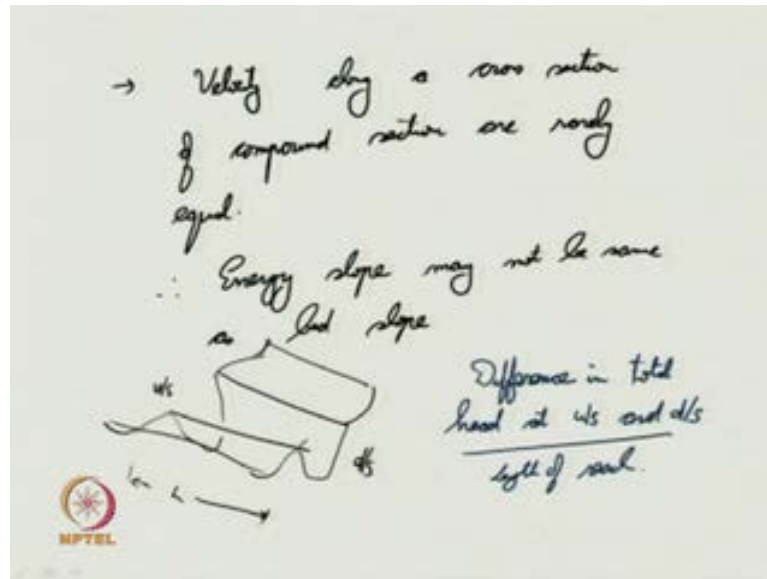 → Velocity along a cross section
of compound section are rarely
equal.
∴ Energy slope may not be same
as bed slope
u/s
d/s
Difference in total
head at u/s and d/s
length of reach.
NPTEL